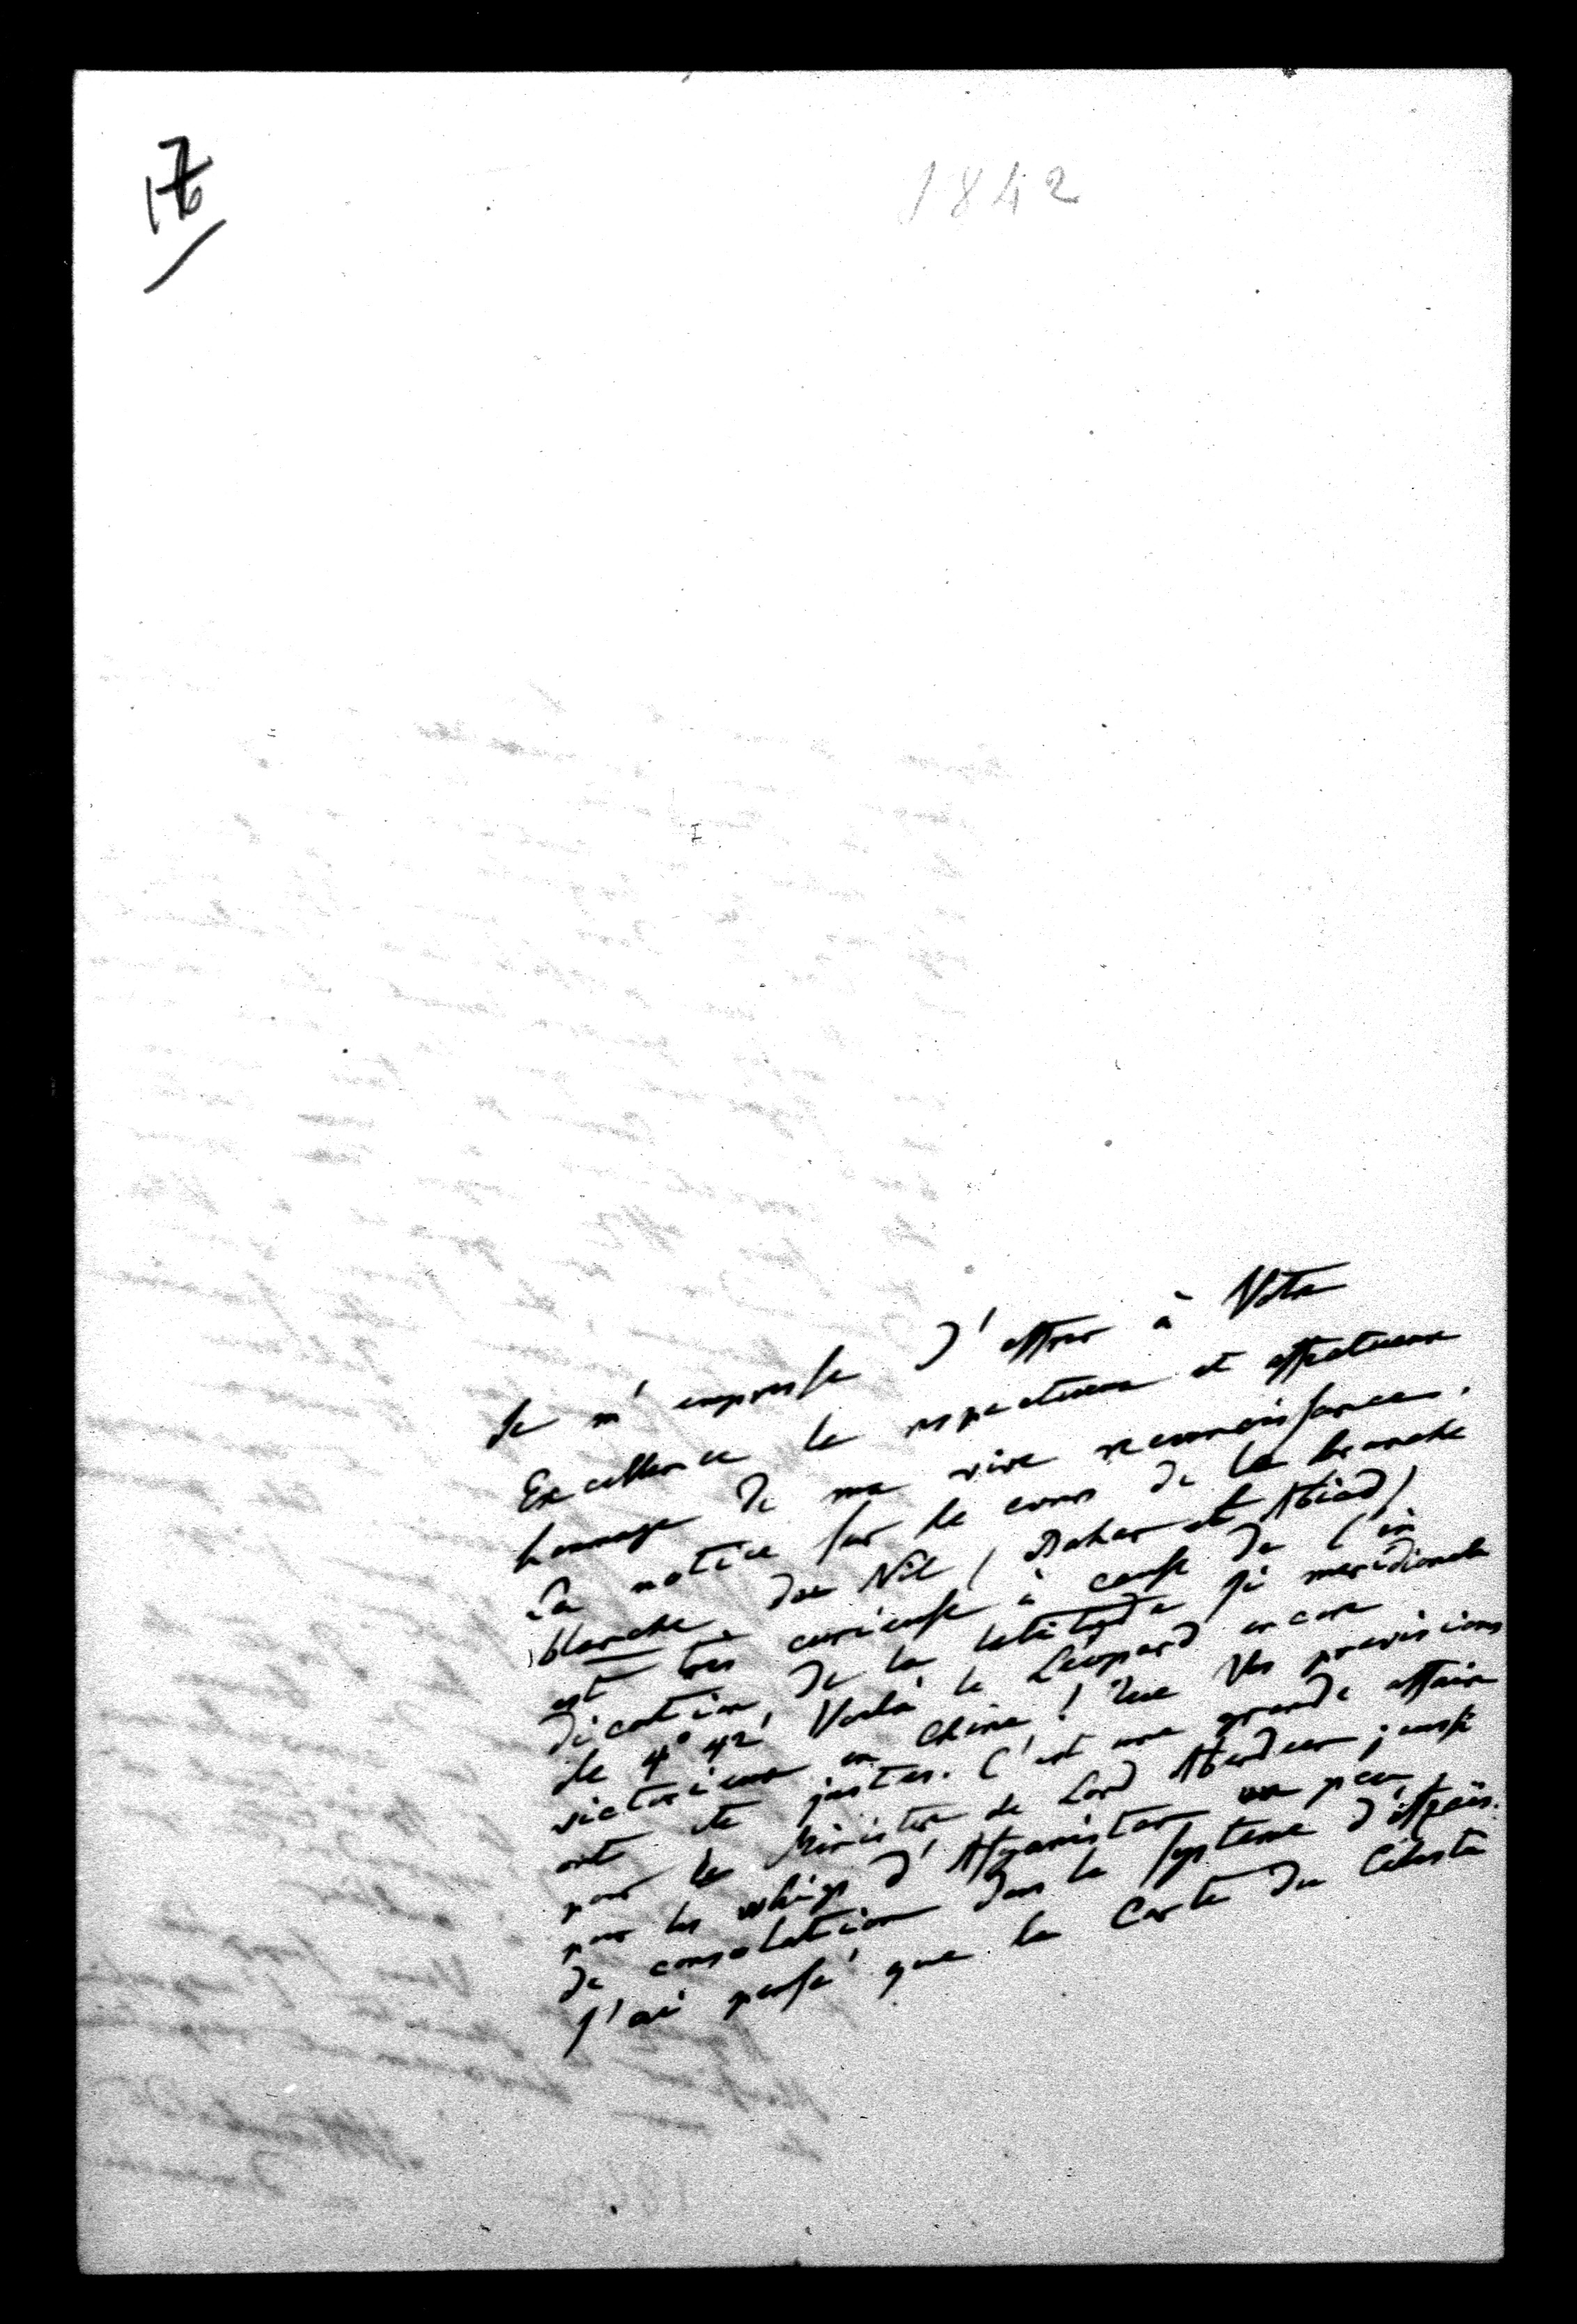 17
1842
Je m'empresse d'offrir à Votre
Excellence le respectueux et affectueux
hommage de ma vive reconnoissance.
La notice sur le cours de la branche
blanche du Nil (Bahar el Abiad)
est très curieuse à cause de l'in
dication de la latitude si meridionale
de 4° 42'. Voilà le Léopard encore
victorieux en Chine! Que Vos previsions
ont été justes. C'est une grande affaire
pour le Ministère de Lord Aberdeen; aussi
pour les whigs d'Afganistan un peu
de consolation dans le systeme
J'ai pensé que la Carte du Céleste